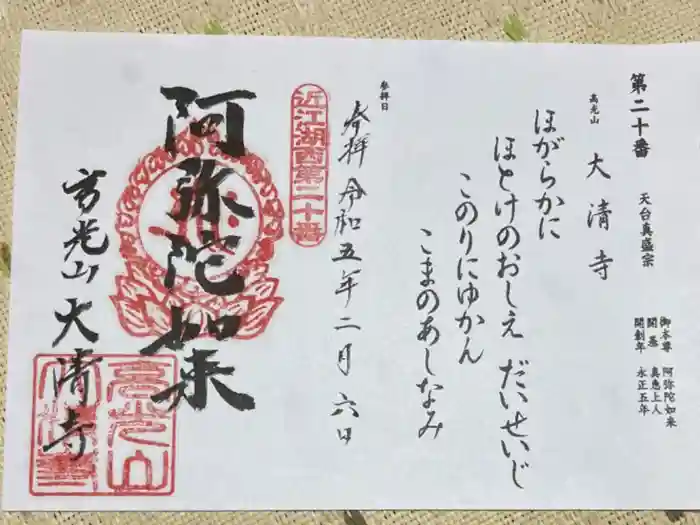 第二十番
天台真盛宗
御本尊 阿弥陀如来
開基 真恵上人
開創年 永正五年
高光山
大清寺
ほがらかに
ほとけのおしえ だいせいじ
このりにゆかん
こまのあしなみ
参拝日
奉拝 令和五年二月六日
近江湖西第二十番
阿弥陀如来
高光山 大清寺
高光山